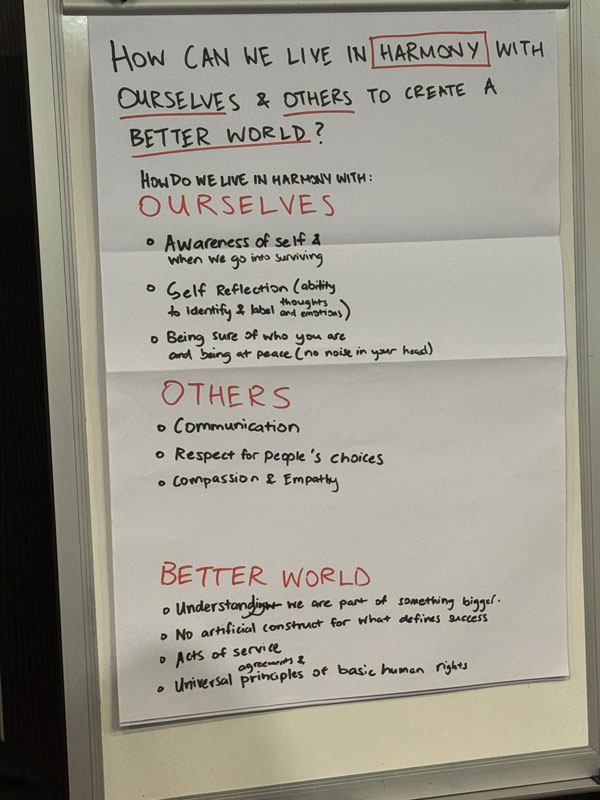 HOW CAN WE LIVE IN HARMONY WITH
OURSELVES & OTHERS TO CREATE A
BETTER WORLD?
HOW DO WE LIVE IN HARMONY WITH:
OURSELVES
• Awareness of self &
when we go into surviving
• Self Reflection (ability
to identify & label thoughts and emotions)
• Being sure of who you are
and being at peace (no noise in your head)
OTHERS
• Communication
• Respect for people's choices
• Compassion & Empathy
BETTER WORLD
• Understand we are part of something bigger.
• No artificial construct for what defines success
• Acts of service
agreements &
• Universal principles of basic human rights